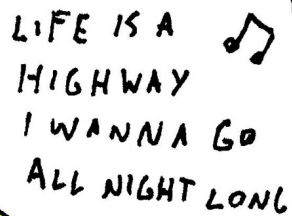 LIFE IS A
HIGHWAY
I WANNA GO
ALL NIGHT LONG